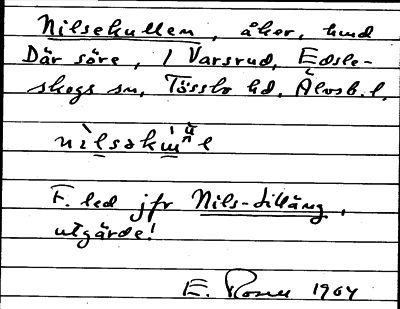 Nilsekullen, åker, hund
Där söre, 1 Varsrud, Edsle-
skogs sn, Tössbo hd, Älvsb. l.
F. led jfr Nils-tilläng,
utgärde!
E. 1964